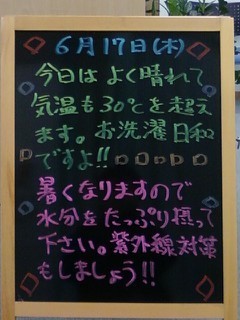 6月17日(木)
今日は よく晴れて
気温も30℃を超え
ます。お洗濯日和
ですよ!!
暑くなりますので
水分をたっぷり摂って
下さい。紫外線対策
もしましょう!!